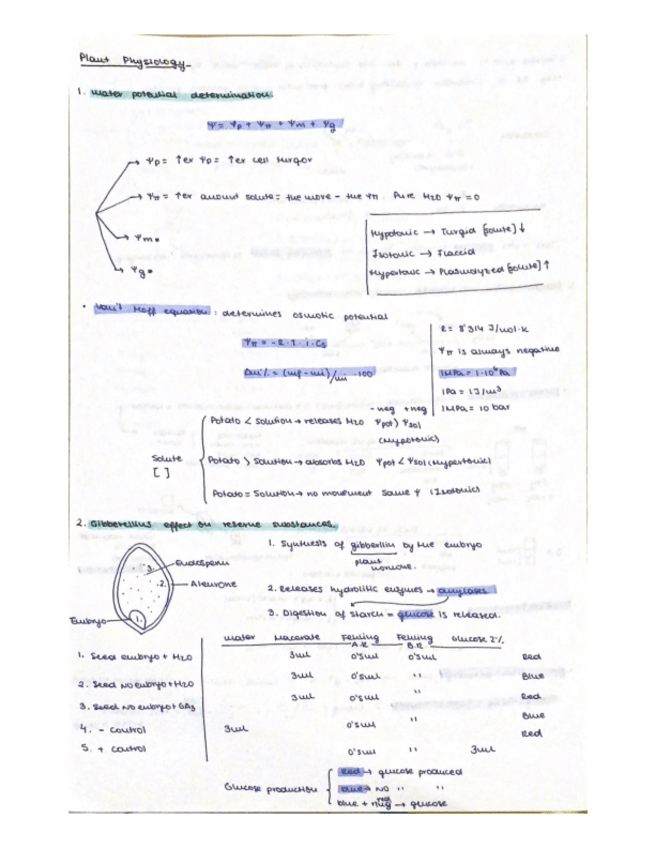 Plant Physiology
1. Water potential determination
Ψ = Ψp + Ψπ + Ψm + Ψg
Ψp = ↑er Ψp = ↑er cell turgor
Ψπ = ↑er amount solute = the more - the Ψπ. Pure H2O Ψπ = 0
Ψm
Ψg
Hypotonic → Turgid [solute] ↓
Isotonic → Flaccid
Hypertonic → Plasmolyzed [solute] ↑
• Van't Hoff equation : determines osmotic potential
Ψπ = - R · T · i · Cs
Δm% = (mf - mi)/mi · 100
R = 8'314 J/mol·K
Ψπ is always negative
1MPa = 1·10⁶ Pa
1Pa = 1J/m³
1MPa = 10 bar
Solute
[ ]
- neg + neg
Potato < Solution → releases H2O Ψpot > Ψsol
(Hypotonic)
Potato > Solution → absorbs H2O Ψpot < Ψsol (Hypertonic)
Potato = Solution → no movement same Ψ (Isotonic)
2. Gibberellins effect on reserve substances.
3. Endosperm
2. Aleurone
Embryo 1.
1. Synthesis of gibberllin by the embryo
plant hormone.
2. Releases hydrolitic enzymes → amylases
3. Digestion of starch = glucose is released.
Water Macerate Fehling A.R Fehling B.R Glucose 2%
1. Seed embryo + H2O 3ml 0'5ml 0'5ml Red
2. Seed NO embryo + H2O 3ml 0'5ml " Blue
3. Seed NO embryo + GA3 3ml 0'5ml " Red
4. - control 3ml 0'5ml " Blue
5. + control 0'5ml " 3ml Red
Glucose production
Red → glucose produced
blue → NO " "
blue + red → glucose